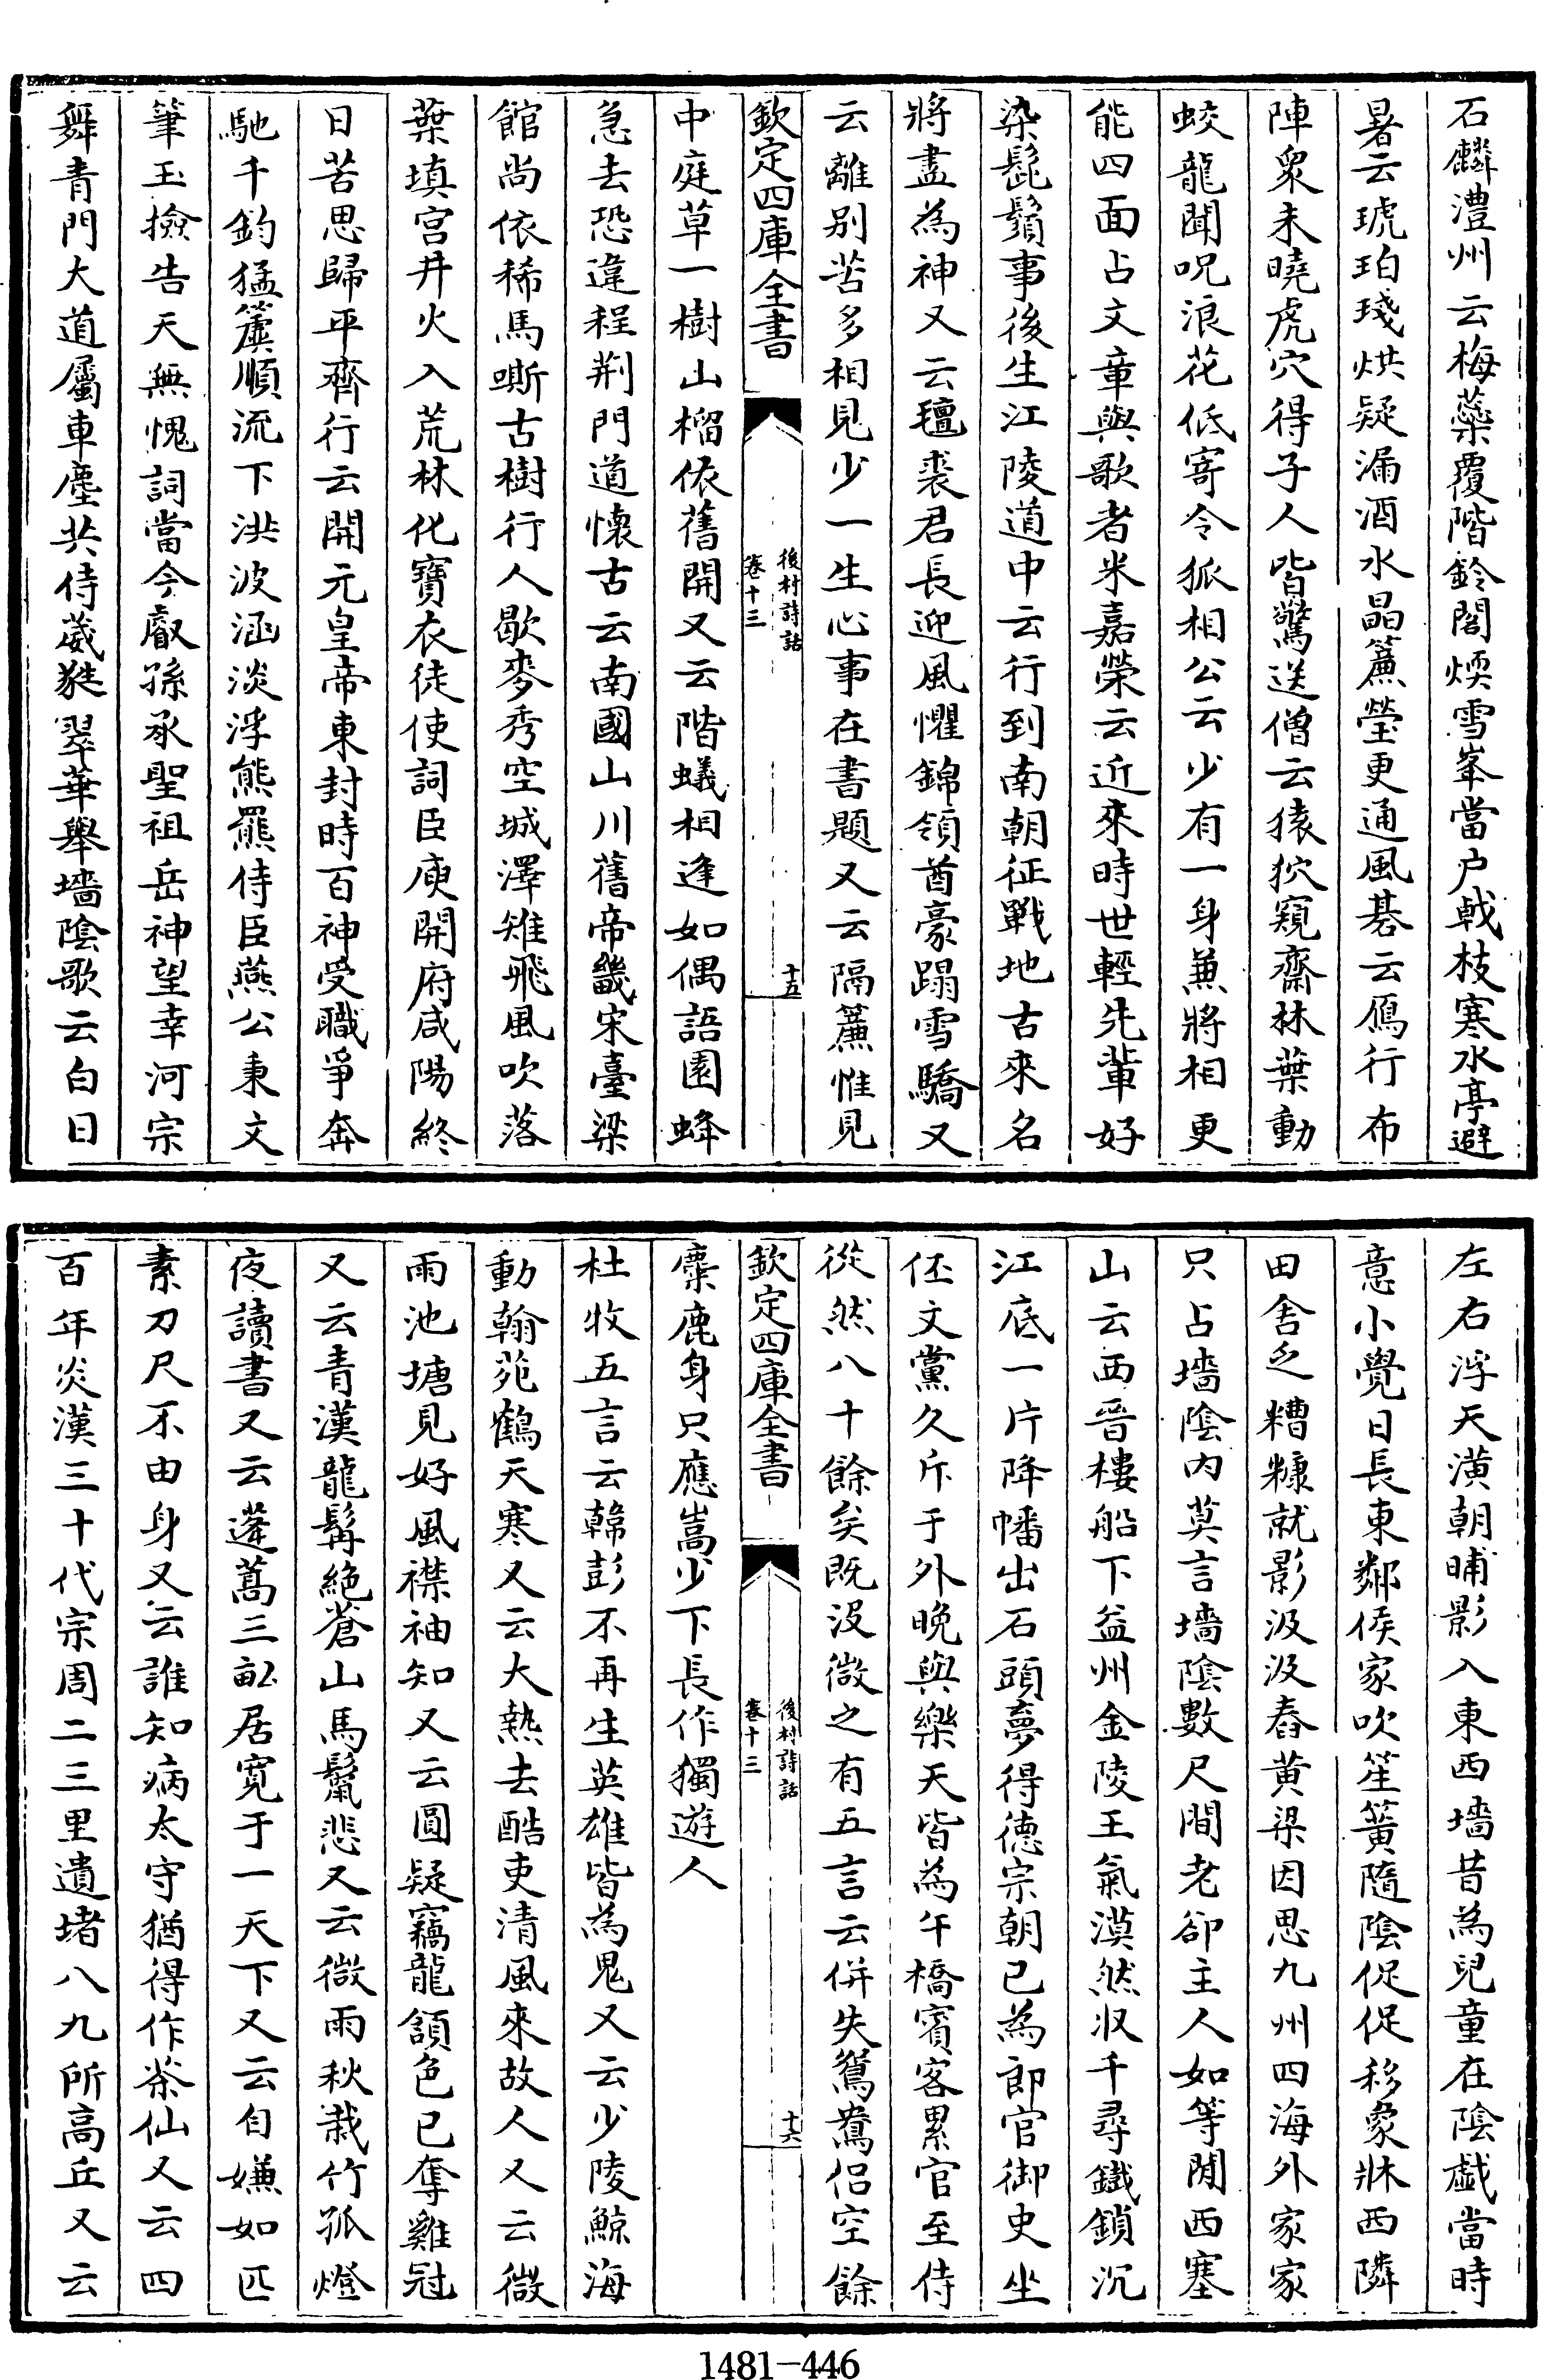 石麟澧州云梅蘂覆階鈴閣煗雪峯當户戟枝寒水亭避
暑云琥珀琖烘疑漏酒水晶簾瑩更通風碁云鴈行布
陣衆未曉虎穴得子人皆驚送僧云猿狖窺齋林葉動
蛟龍聞呪浪花低寄令狐相公云少有一身兼將相更
能四面占文章與歌者米嘉榮云近來時世輕先輩好
染髭鬚事後生江陵道中云行到南朝征戰地古來名
將盡為神又云氊裘君長迎風懼錦領酋豪蹋雪驕又
云離别苦多相見少一生心事在書題又云隔簾惟見
欽定四庫全書
後村詩話
卷十三
十五
中庭草一樹山榴依舊開又云階蟻相逢如偶語園蜂
急去恐違程荆門道懷古云南國山川舊帝畿宋臺梁
館尚依稀馬嘶古樹行人歇麥秀空城澤雉飛風吹落
葉填宫井火入荒林化寶衣徒使詞臣庾開府咸陽終
日苦思歸平齊行云開元皇帝東封時百神受職爭奔
馳千鈞猛簴順流下洪波涵淡浮熊羆侍臣燕公秉文
筆玉撿告天無愧詞當今叡孫承聖祖岳神望幸河宗
舞青門大道屬車塵共待葳蕤翠華舉墻陰歌云白日
左右浮天潢朝晡影入東西墻昔為兒童在陰戯當時
意小覺日長東鄰侯家吹笙簧隨陰促促移象牀西隣
田舍乏糟糠就影汲汲舂黄粱因思九州四海外家家
只占墻陰内莫言墻陰數尺間老卻主人如等閒西塞
山云西晉樓船下益州金陵王氣漠然収千尋鐵鎖沉
江底一片降幡出石頭夢得德宗朝已為郎官御史坐
伾文黨久斥于外晩與樂天皆為午橋賓客累官至侍
從然八十餘矣既沒微之有五言云併失鴛鴦侣空餘
欽定四庫全書
後村詩話
卷十三
十六
麋鹿身只應嵩少下長作獨遊人
杜牧五言云韓彭不再生英雄皆為鬼又云少陵鯨海
動翰苑鶴天寒又云大熱去酷吏清風來故人又云微
雨池塘見好風襟袖知又云圓疑竊龍頷色已奪雞冠
又云青漢龍髯絶蒼山馬鬛悲又云微雨秋栽竹孤燈
夜讀書又云蓬蒿三畝居寛于一天下又云自嫌如匹
素刀尺不由身又云誰知病太守猶得作茶仙又云四
百年炎漢三十代宗周二三里遺堵八九所高丘又云
1481-446